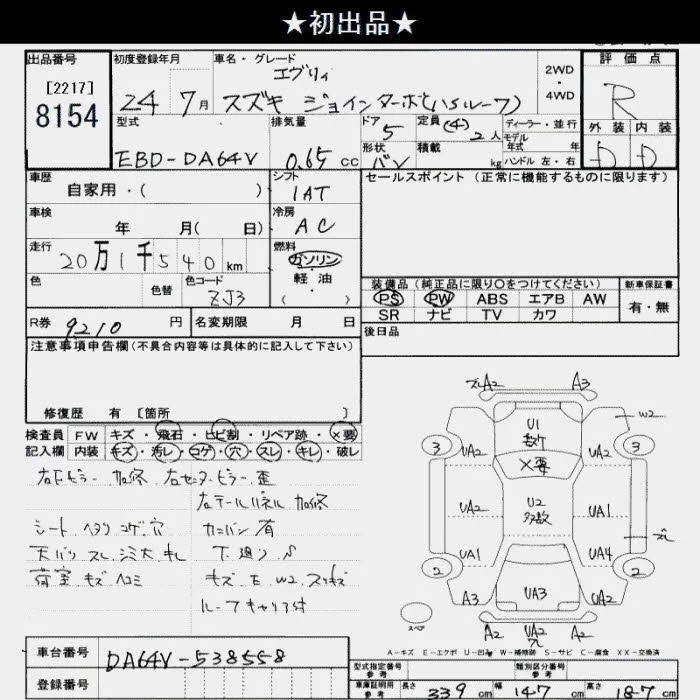 ★初出品★
出品番号
[2217]
8154
初度登録年月
24 7月
車名・グレード
エヴリィ
スズキ ジョインターボ(ハイルーフ)
2WD
4WD
評価点
R
外装 内装
D D
型式
EBD-DA64V
排気量
0.65 cc
ドア
5
形状
バン
定員 (4)
2 人
積載
kg
ディーラー・並行
モデル
年式 年
ハンドル 左・右
車歴
自家用・( )
シフト
1AT
セールスポイント (正常に機能するものに限ります)
車検
年 月( 日)
冷房
AC
走行
20万1千540km
燃料
ガソリン
軽・油
( )
色
色替
色コード
ZJ3
装備品(純正品に限り○をつけてください)
PS PW ABS エアB AW
SR ナビ TV カワ
新車保証書
有・無
R券
9210 円
名変期限 月 日
後日品
注意事項申告欄(不具合内容等は具体的に記入して下さい)
修復歴 有 [箇所 ]
検査員
記入欄
FW キズ・飛石・ヒビ割・リペア跡・×要
内装 キズ・汚レ・コゲ・穴・スレ・キレ・破レ
右Fピラー 加修 右センターピラー 歪
右テールパネル 加修
シート ヘタリ コゲ 穴
カンバン有
天バリ スレ シミ大 キレ
下廻り S
荷室 キズ ヘコミ
キズ E W2 スリキズ
ルーフキャリア付
ズレA2 A3
W2
U1
数ケ
3 3
UA2 ×要 UA2
UA2 U2 UA1
多数
ズレ
UA1 UA4
2 2
A3 UA3 UA2
スペア
A2 UA2 A2
穴
A-キズ E-エクボ U-凹み W-補修跡 S-サビ C-腐食 XX-交換済
車台番号
DA64V-538558
登録番号
型式指定番号
参考
類別区分番号
参考
車庫証明用
参考
長さ 339 cm 幅 147 cm 高さ 187 cm